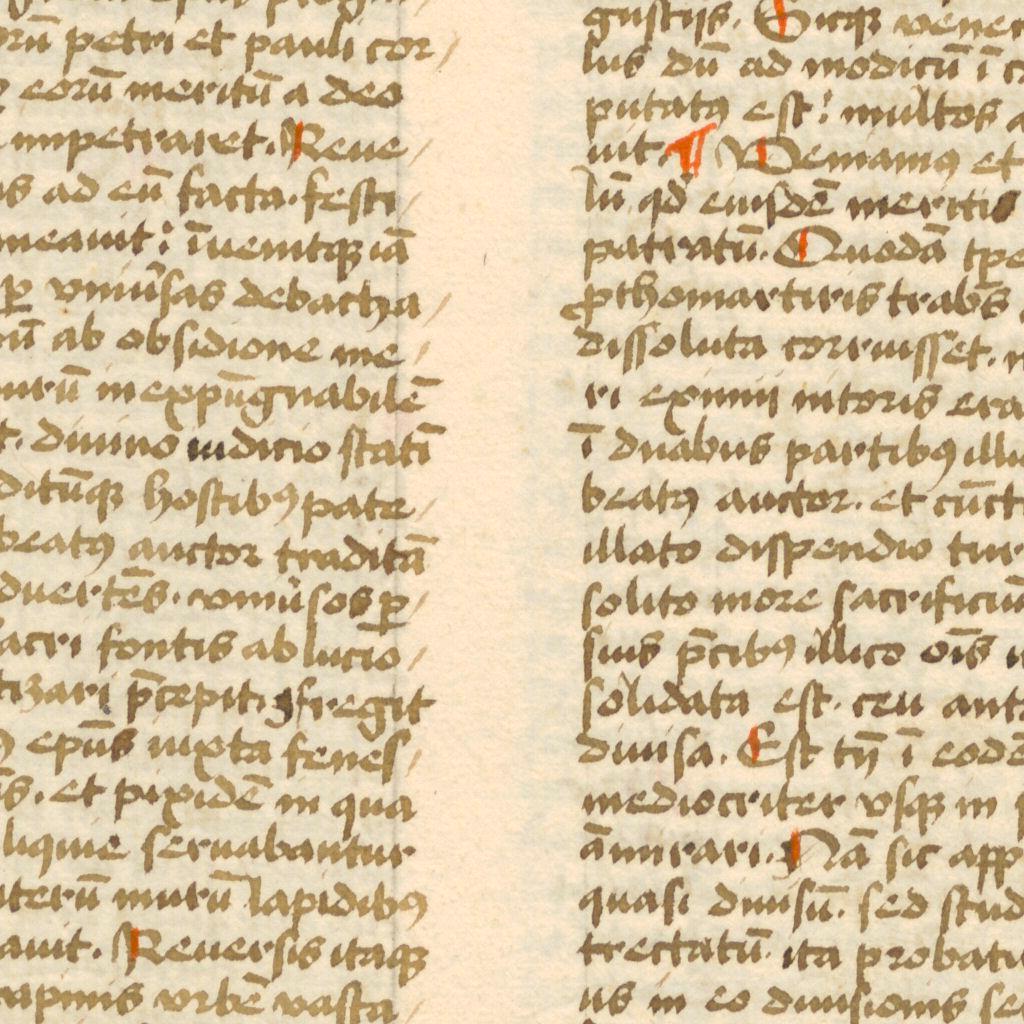 orū petri et pauli cor-
eorū meritū a deo
impetraret. Reue-
ad eū facta. festi-
meauit: īuenitqꝫ iā
ꝑ vniu̾sas debacha-
ab obsidione me-
murū inexpūgnabilē
diuino iudicio statī
ditūqꝫ hostibꝰ pate-
beatꝰ auctor traditā
duertēs. vniu̾sos ꝑ-
acri fontis ablucio-
tizari p̄cepit. ꝯfregit
ep̄us iuxta fenes-
et pixidē in qua
liquie seruabantur
iterū murū lapidibꝰ
auit. Reuersis itaqꝫ
rapinis vrbē vasta-
gustijs. Sicqꝫ
lus dū ad modicū ī
putatꝰ est: multos
uit. ¶ Veniamꝰ et
lū. qd̄ eiusdē meritis
patratū. Quodā tp̄e
ꝓthomartiris trabs
dissoluta corruisset.
ri eximij nitoris
ī duabus partibꝰ
beatꝰ auctor. et
illato dispendio
solito more sacrificiū
suis p̄cibꝰ illico oīs
solidata est. ceu
diuisa. Est tn̄ ī eodē
mediocriter vsqꝫ in
āmirari. Nā sic
quasi diuisū. sed
trectatū. ita
us in eo diuisionis